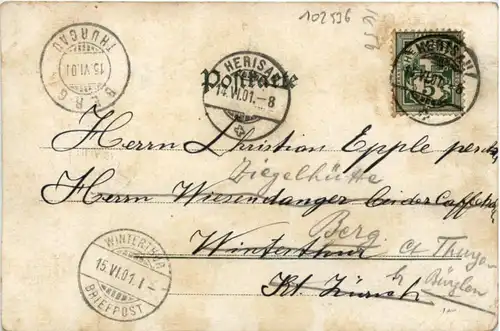 102596
HERISAU
14.VI.01.-8
5
HERISAU
BERG
THURGAU
15.VI.01
Postkarte
HERISAU
14.VI.01.-8
Herrn Christian Epple
Ziegelhütte
Herrn Wiesendanger
Berg
Winterthur Ct Thurgau
b/ Bürglen
Kt. Zürich
WINTERTHUR
15.VI.01.1-
BRIEFPOST